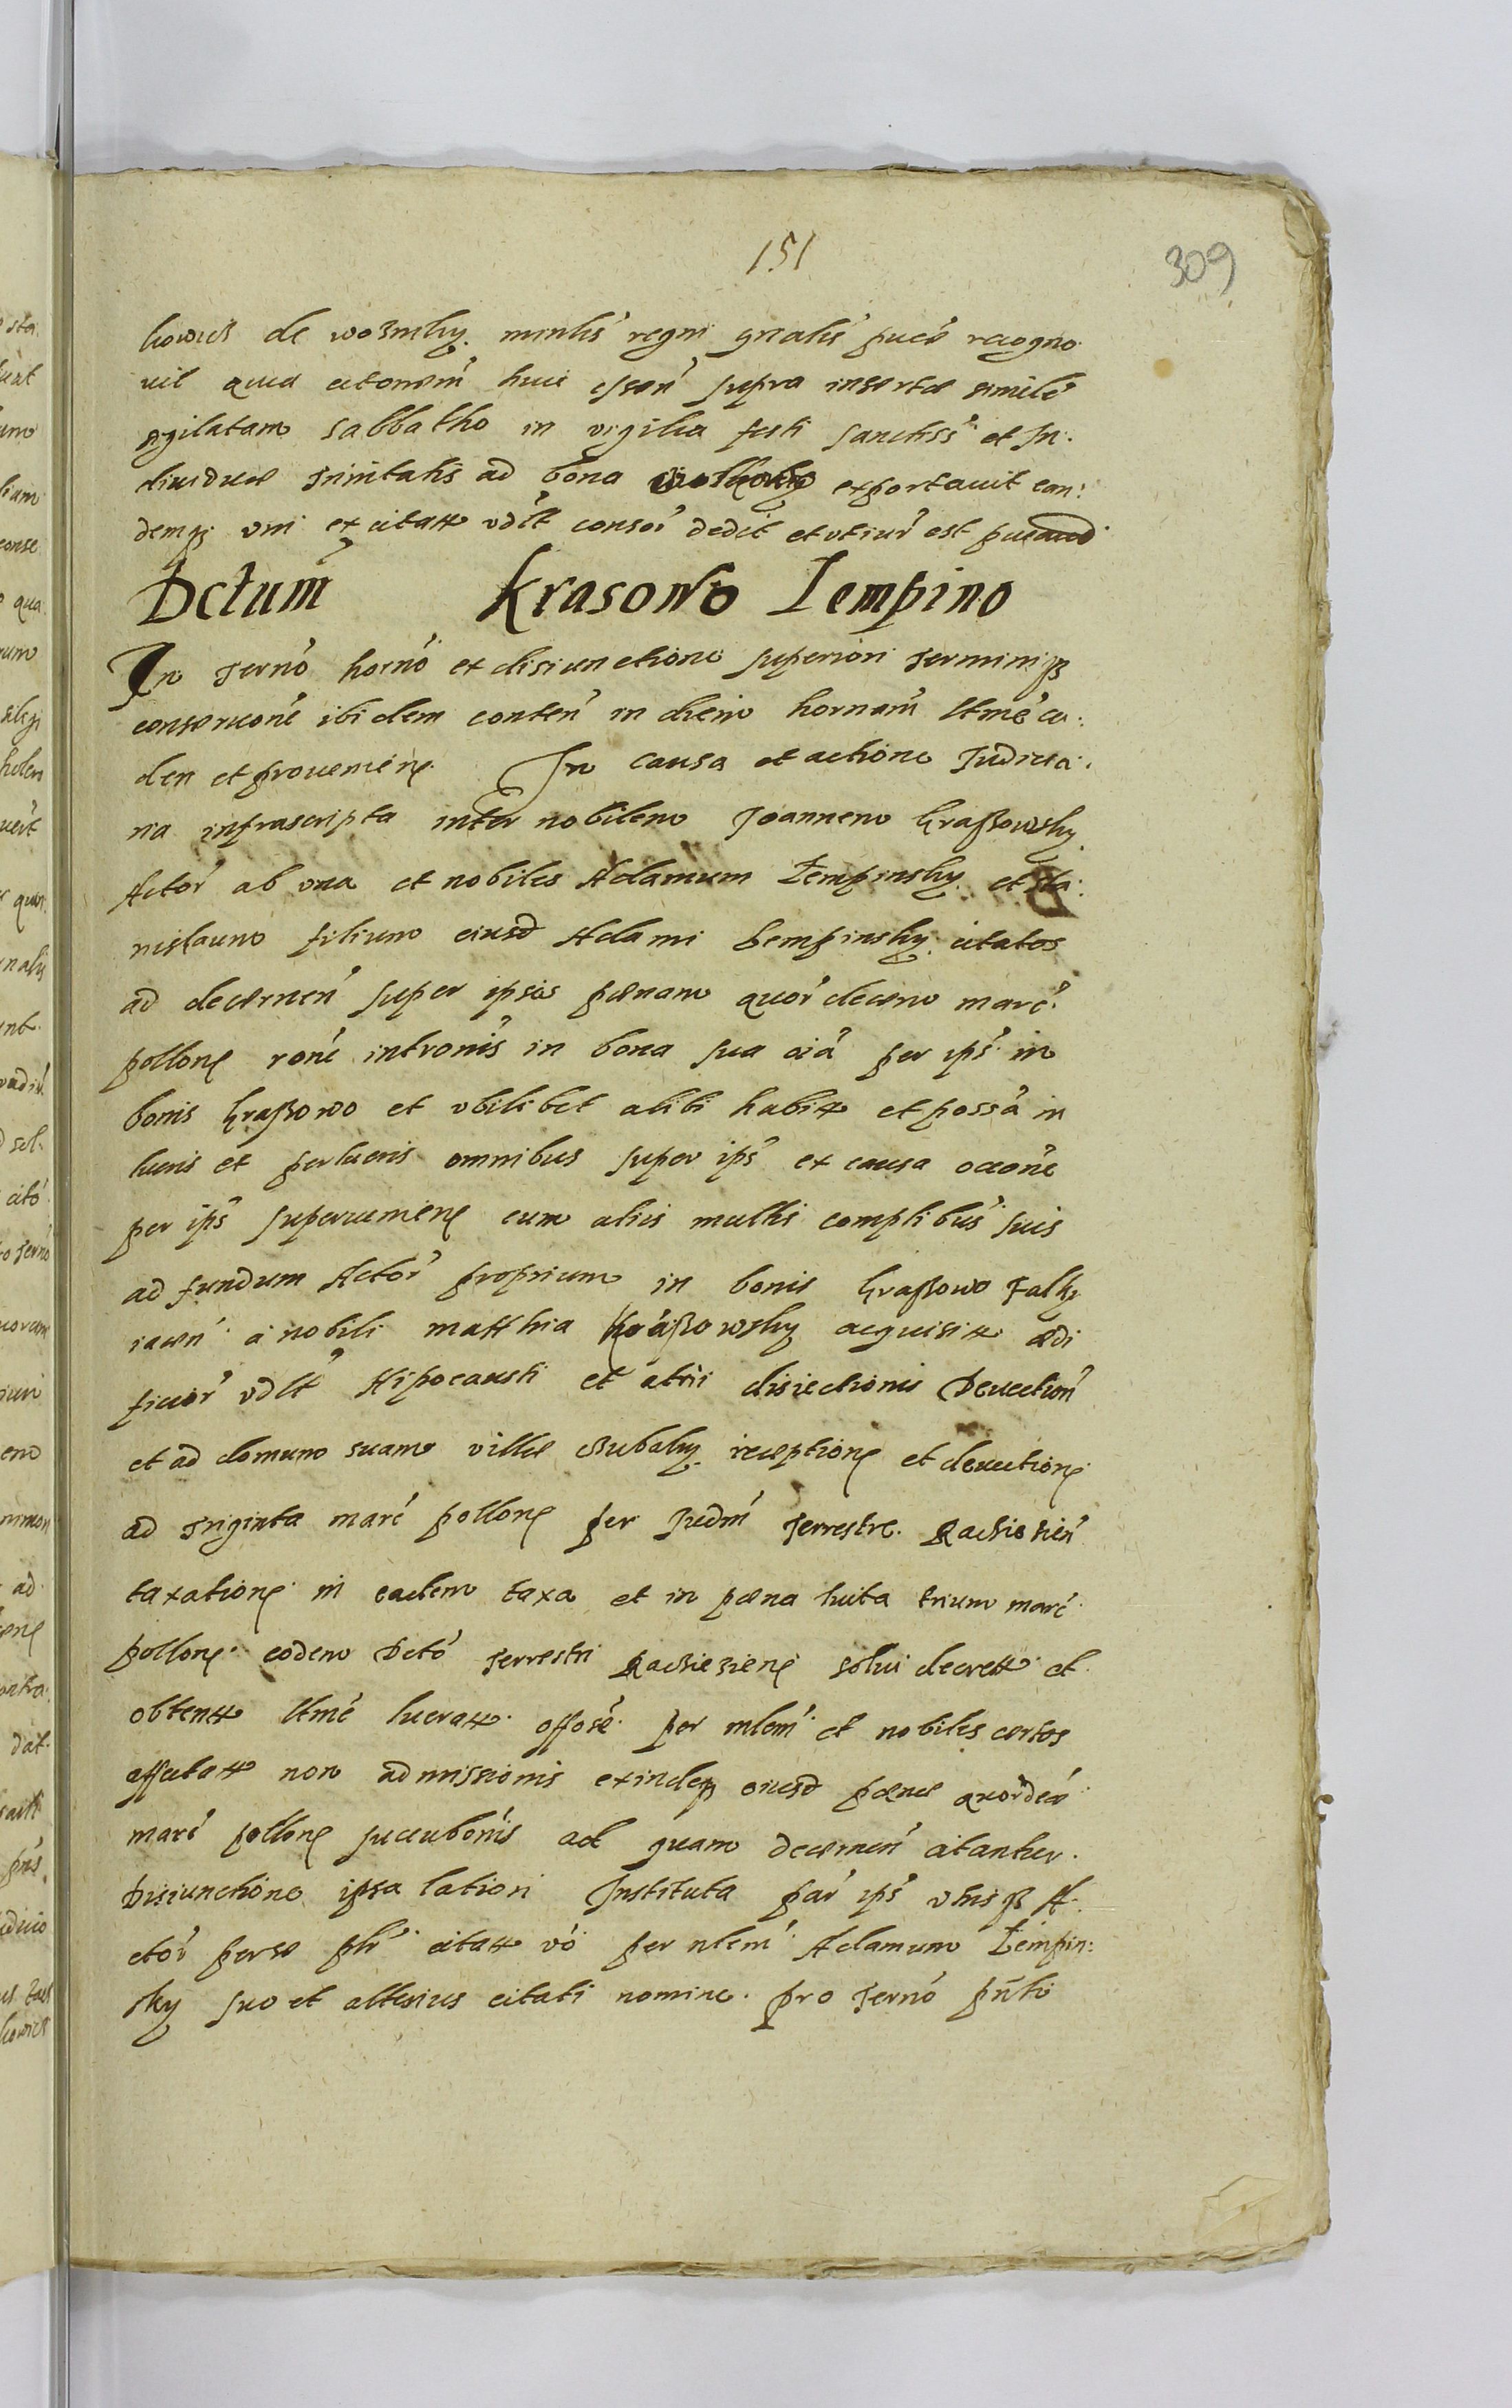 151
309
kowicz de wozniky minlis regni gnalis puce recogno
vit quia citonem huic essen supra insertae simile
sigilatam sabbatho in vigilia festi sanctiss et In
dividuae Trinitatis ad bona exportavit ean:
demq uni ex citatt vdlt consor dedit et utiur est
Dctum Krasowo Lempino
In Terno horno ex disiunctione superiori Terminiq
conservone ibidem conten in diem hornam ltme ca:
den et provenien. In causa et actione Judicia:
ria infrascripta inter nobilem Joannem Kraßowsky
Actor ab una et nobiles Adamum Lempinsky et Sta:
nislaum filium eiusd Adami Lempinsky citatos
ad decernen super ipsos paenam quordecem marc
pollone rone intromis in bona sua oia per ips in
bonis Kraßowo et ubilibet alibi habitt et possa in
lucris et perlucris omnibus super ips ex causa occone
per ips supervenien cum aliis multis complibus suis
ad fundum Actor proprium in bonis Kraßowo Falki
iacen a nobili Matthia Kraßowsky acquisitt aedi
ficior vdlt Hipocausti et atrii disiectionis Devection
et ad domum suam villae receptione et devectione
ad Triginta marc pollone per Judm Terrestre Racziezien
taxatione in eadem taxa et in paena luita trium marc
pollone eodem Dcto Terrestri Raczieziene solui decrett et
obtentt ltme lucratt offose per mlem et nobiles certos
affectatt non admissionis exindeq eiusd paenae quordec
marc pollone succubonis ad quam decernen citantur.
Disiunctione ipsa latiori Instituta par ips vtrisq A:
ctor perse plr citatt vo per nlem Adamum Lempin:
sky suo et alterius citati nomine pro Terno pnti